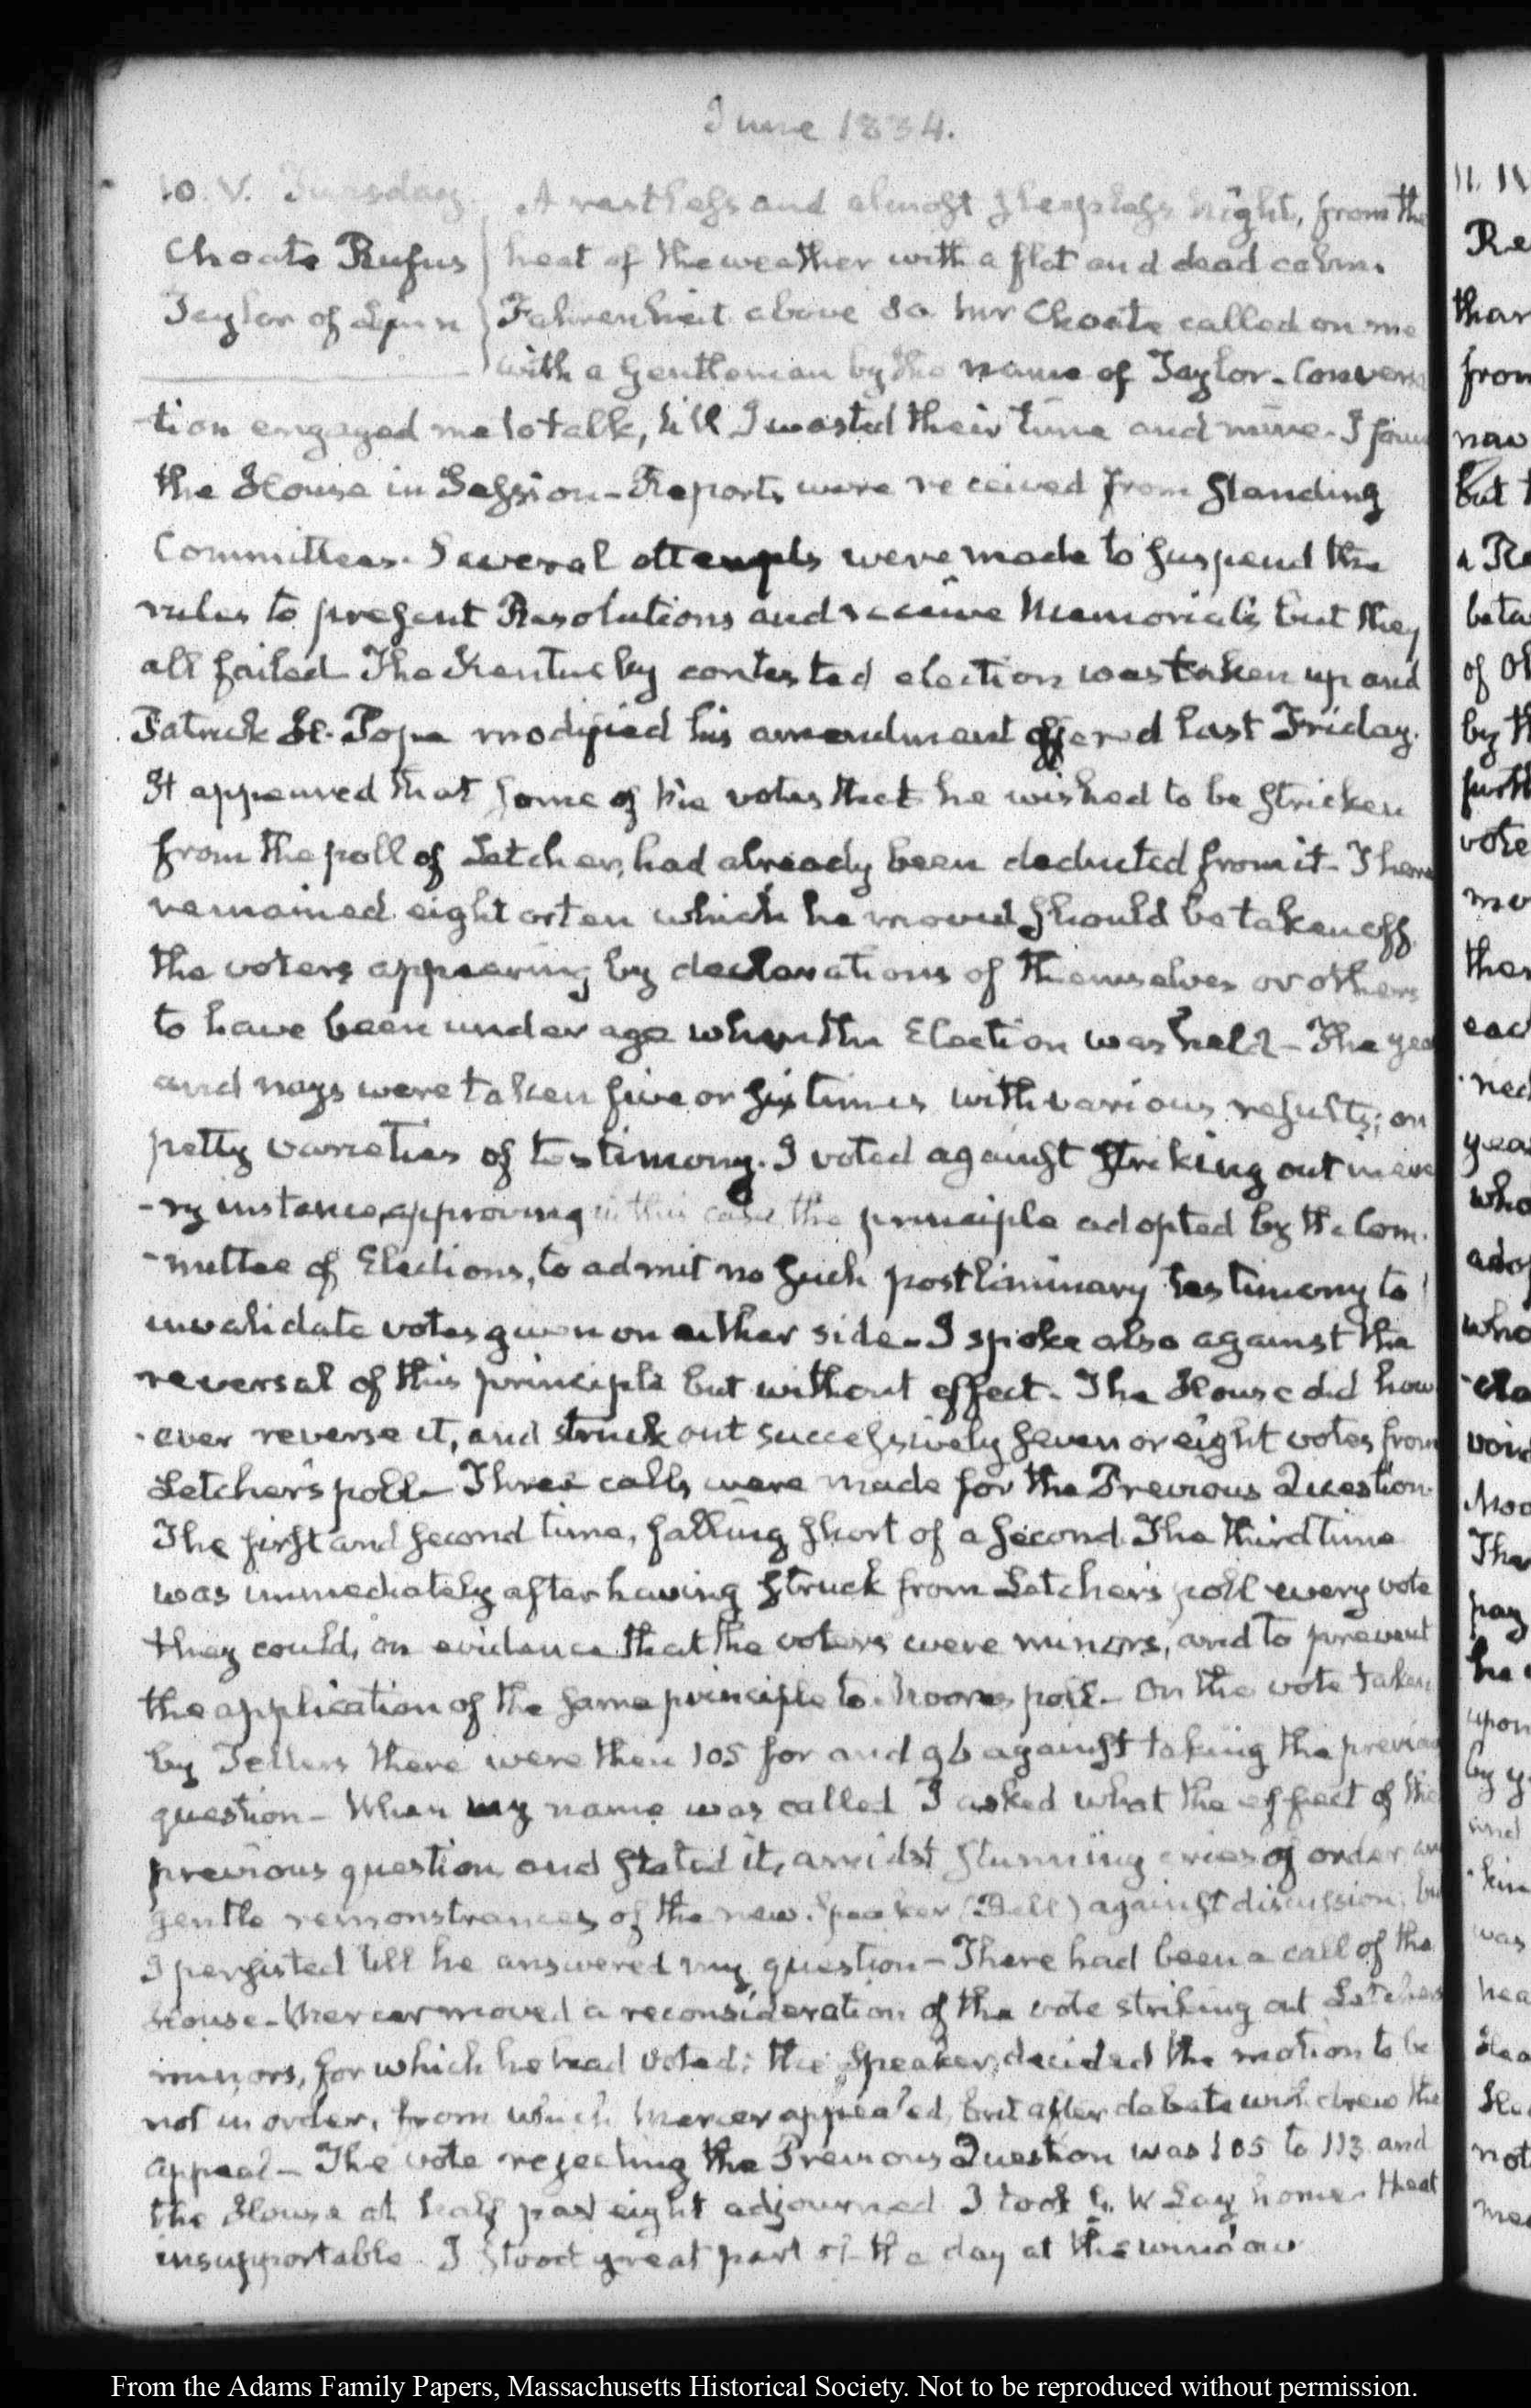 June 1834.
10. V. Tuesday. A restless and almost sleepless night, from the
Choate Rufus heat of the weather with a flat and dead calm.
Taylor of Lynn Fahrenheit above 80. Mr Choate called on me
with a Gentleman by the name of Taylor. Conversa
-tion engaged me to talk, till I wasted their time and mine. I foun
the House in Session - Reports were received from standing
Committees. Several attempts were made to suspend the
rules to present Resolutions and receive Memorials but they
all failed. The Kentucky contested election was taken up and
Patrick H. Pope modified his amendment offered last Friday.
It appeared that some of the votes that he wished to be stricken
from the poll of Letcher, had already been deducted from it - There
remained eight or ten which he moved should be taken off
the voters appearing by declarations of themselves or others
to have been under age when the Election was held - The yea
and nays were taken five or six times with various results; on
petty varieties of testimony. I voted against striking out in eve
-ry instance, approving in this case the principle adopted by the Com-
-mittee of Elections, to admit no such postliminary testimony to
invalidate votes given on either side - I spoke also against the
reversal of this principle but without effect. The House did how
-ever reverse it, and struck out successively seven or eight votes from
Letcher's poll - Three calls were made for the Previous Question.
The first and second time, falling short of a second. The third time
was immediately after having struck from Letcher's poll every vote
they could, on evidence that the voters were minors, and to prevent
the application of the same principle to Moore's poll - On the vote taken
by Tellers there were then 105 for and 96 against taking the previou
question - When my name was called I asked what the effect of the
previous question and stated it, amidst stunning cries of order an
gentle remonstrances of the new Speaker (Bell) against discussion; bu
I persisted till he answered my question - There had been a call of the
House - Mercer moved a reconsideration of the vote striking out Letchers
minors, for which he had voted; the Speaker, decided the motion to be
not in order, from which Mercer appealed, but after debate withdrew the
appeal - The vote rejecting the Previous Question was 105 to 113 and
the House at half past eight adjourned I took G. W Lay home. Heat
insupportable. I stood great part of the day at the window
11. IV
Re
than
from
now
but t
a Re
betw
of Oh
by th
furth
vote
mo
ther
eac
ned
yea
who
adop
who
void
Moo
That
pay
he
upon
by y
and
kin
was
hea
not
From the Adams Family Papers, Massachusetts Historical Society. Not to be reproduced without permission.